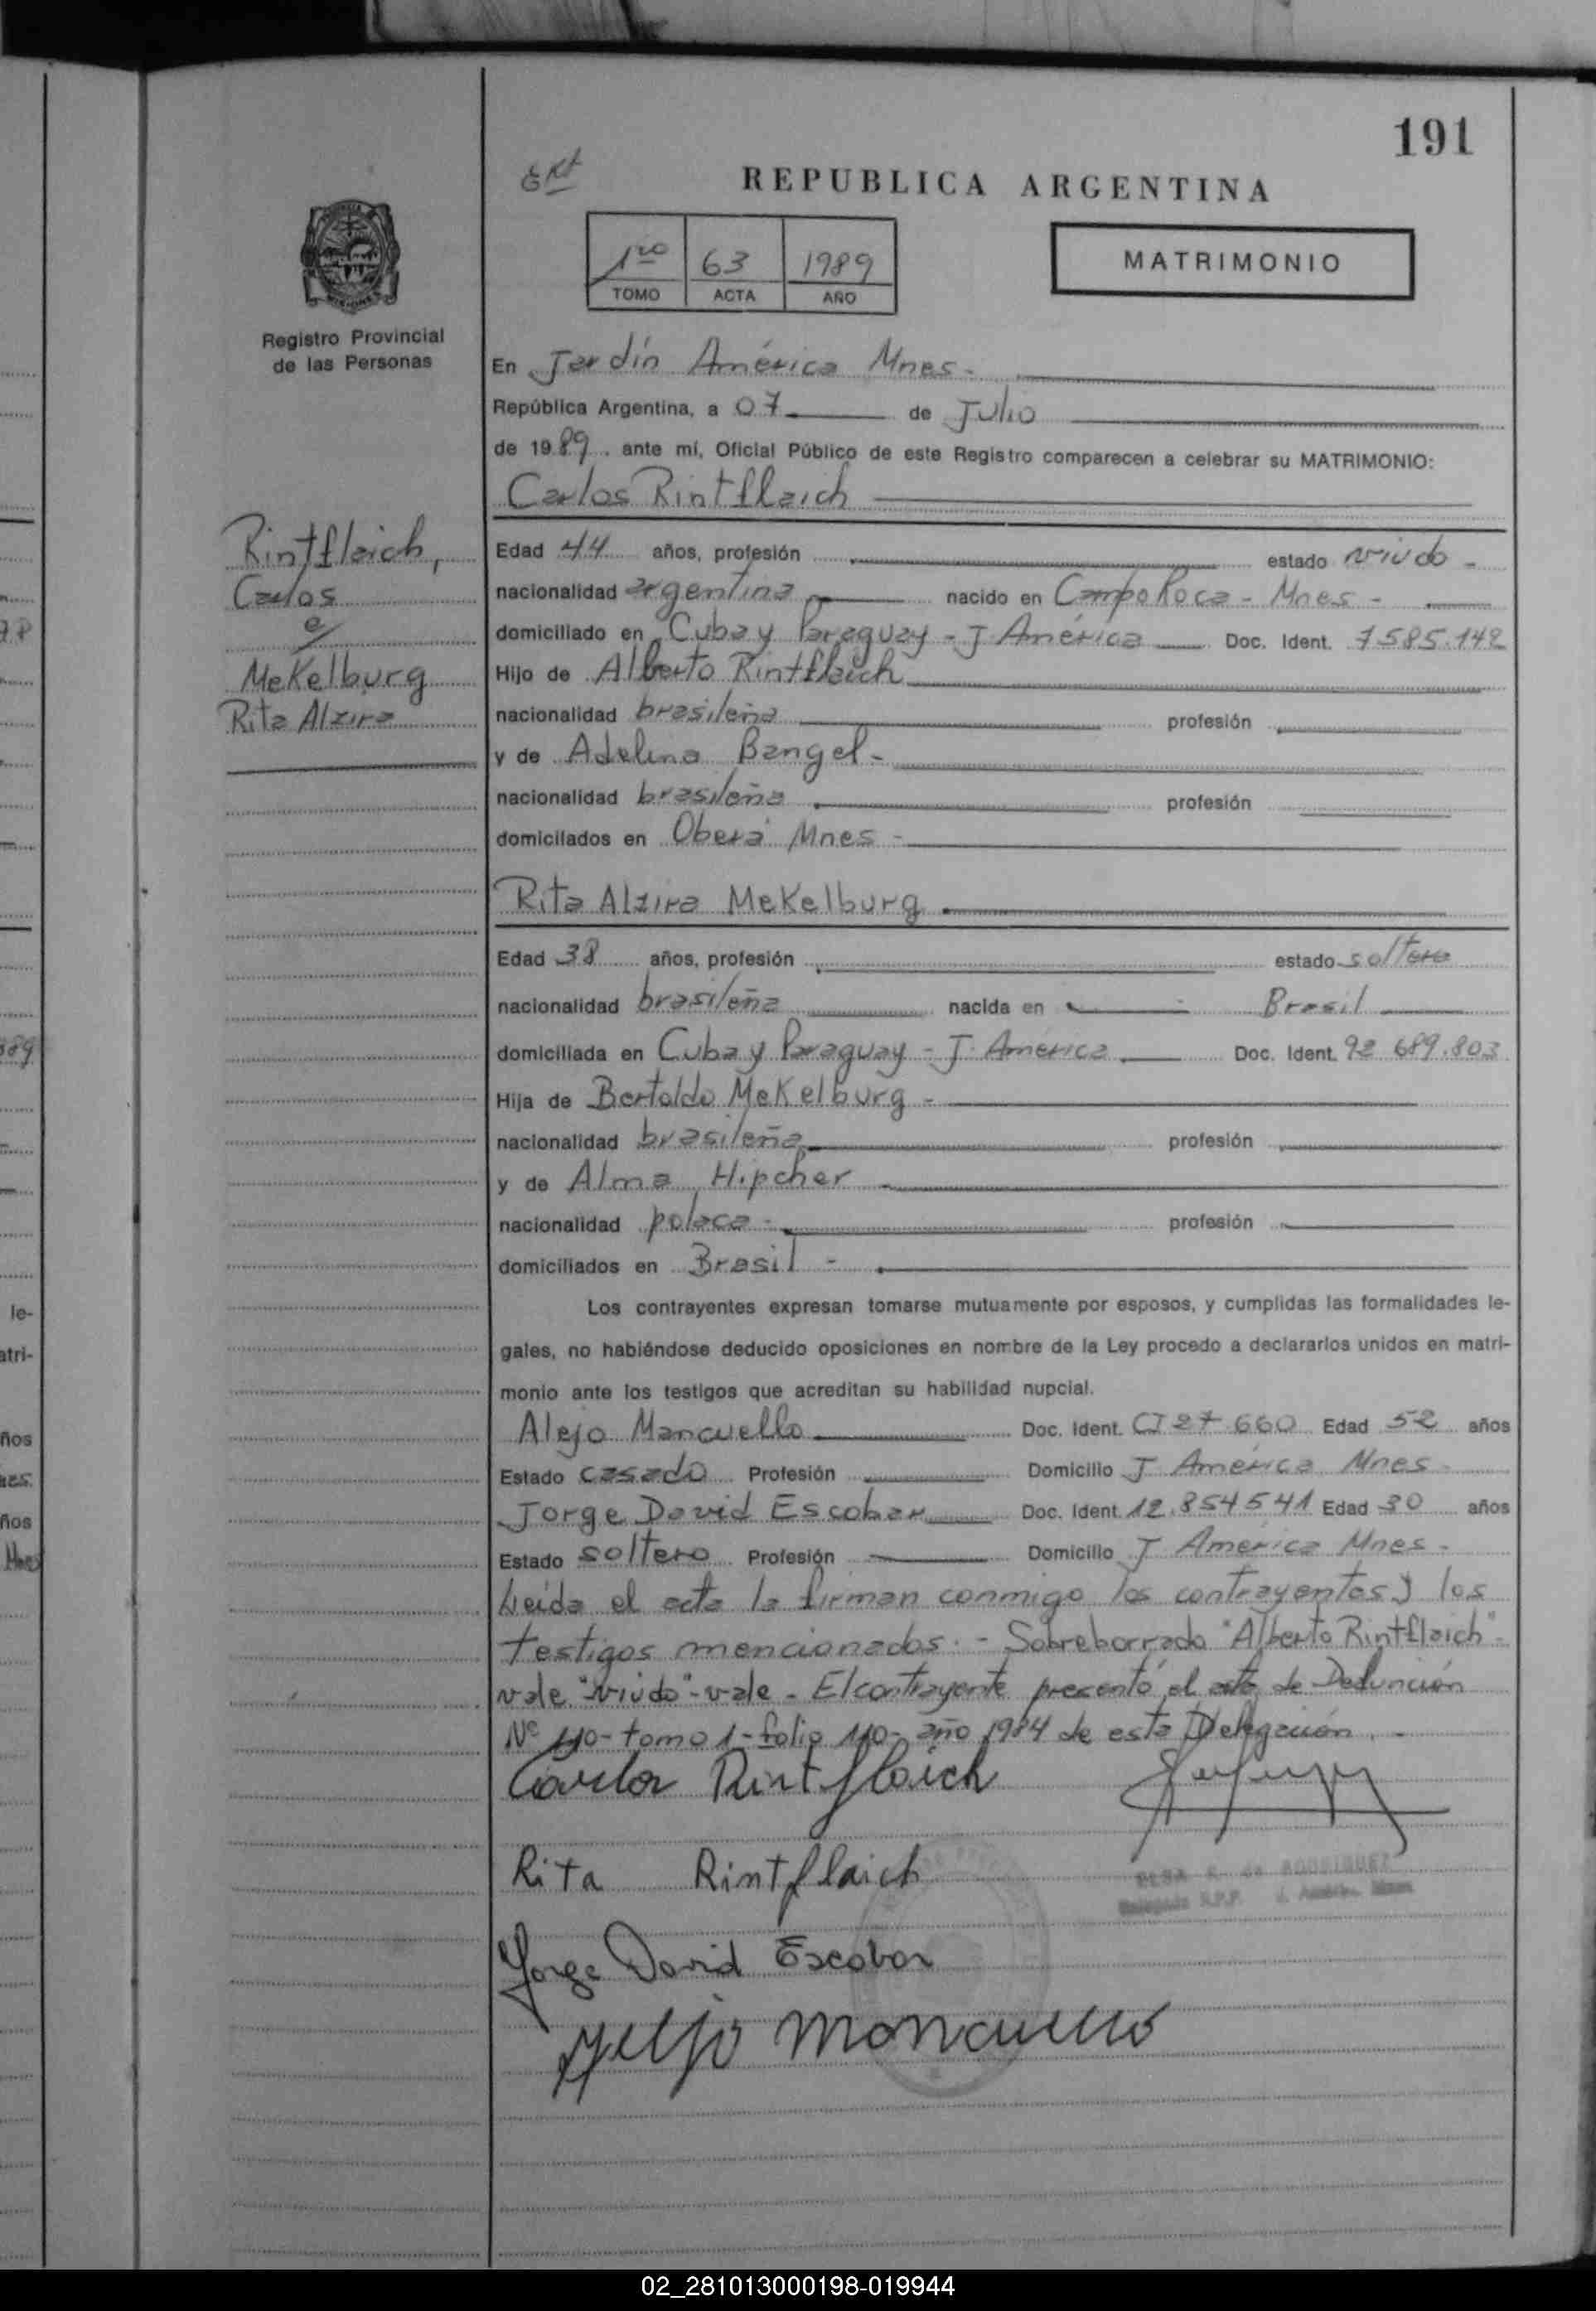 191
Ext
REPUBLICA ARGENTINA
1ro 63 1989
TOMO ACTA AÑO
MATRIMONIO
Registro Provincial
de las Personas
En Jardín América Mnes.-
República Argentina, a 07 de Julio
de 1989. ante mí, Oficial Público de este Registro comparecen a celebrar su MATRIMONIO:
Carlos Rintflaich
Rintflaich,
Carlos
c/
Mekelburg
Rita Alzira
Edad 44 años, profesión estado viudo -
nacionalidad argentina nacido en Campo Roca - Mnes -
domiciliado en Cuba y Paraguay - J. América Doc. Ident. 7585.142
Hijo de Alberto Rintflaich
nacionalidad brasileña profesión
y de Adelina Bangel -
nacionalidad brasileña profesión
domicilados en Oberá Mnes -
Rita Alzira Mekelburg
Edad 38 años, profesión estado soltera
nacionalidad brasileña nacida en Brasil
domiciliada en Cuba y Paraguay - J. América Doc. Ident. 92 689.803
Hija de Bertoldo Mekelburg -
nacionalidad brasileña profesión
y de Alma Hipcher
nacionalidad polaca - profesión
domiciliados en Brasil -
Los contrayentes expresan tomarse mutuamente por esposos, y cumplidas las formalidades le-
gales, no habiéndose deducido oposiciones en nombre de la Ley procedo a declararlos unidos en matri-
monio ante los testigos que acreditan su habilidad nupcial.
Alejo Mancuello Doc. Ident. CI 27.660 Edad 52 años
Estado casado Profesión Domicilio J América Mnes -
Jorge David Escobar Doc. Ident. 12.854541 Edad 30 años
Estado soltero Profesión Domicilio J América Mnes -
Leída el acta la firman conmigo los contrayentes y los
testigos mencionados. - Sobreborrado "Alberto Rintflaich"-
vale "viudo"-vale - El contrayente presentó el acta de Defunción
Nº 110 - tomo 1 - folio 110 - año 1984 de esta Delegación. -
Carlos Rintflaich
Rita Rintflaich
RODRIGUEZ
Jorge David Escobar
Alejo Mancuello
02_281013000198-019944